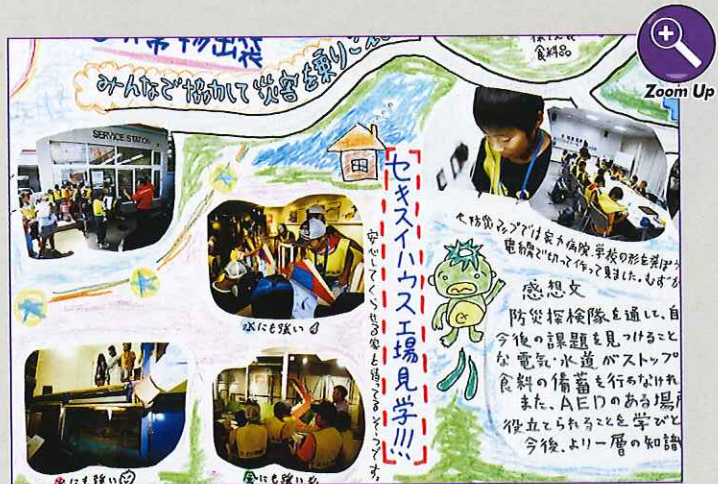 Zoom Up
非常持出袋
食料品
みんなで協力して災害を乗りこえ
SERVICE STATION
セキスイハウス工場見学!!!
安心してくらせる家を造ってるそうです。
水にも強い
火にも強い
風にも強い
防災マップでは家や病院、学校の形を
電線で切って作って見ました。
感想文
防災探検隊を通して、自
今後の課題を見つけること
な電気・水道がストップ
食料の備蓄を行わなければ
また、AEDのある場所
役立てられることを学びと
今後、より一層の知識